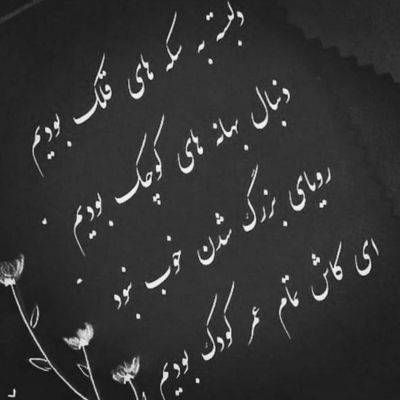 دلبسته به سکه های قلک بودیم
دنبال بهانه های کوچک بودیم
رویای بزرگ شدن خوب نبود
ای کاش تمام عمر کودک بودیم